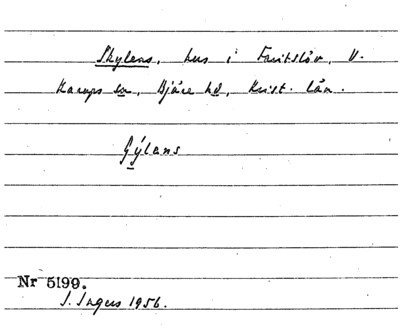 Skylens, hus i Faritslöv, V.
Karups sn, Bjäre hd, Krist. län.
Gýlens
Nr 5199.
S. Ingers 1956.